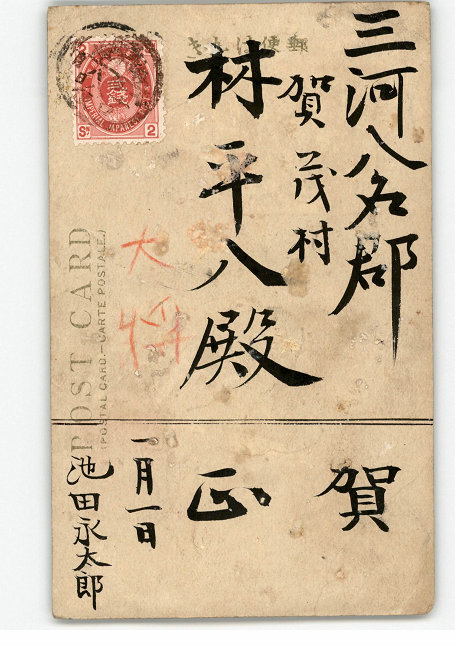 三河八名郡
賀茂村
林平八殿
大将
賀
正
一月一日
池田永太郎
POST CARD
(POSTAL CARD.—CARTE POSTALE.)
貳銭
IMPERIAL JAPANESE
Sn
2